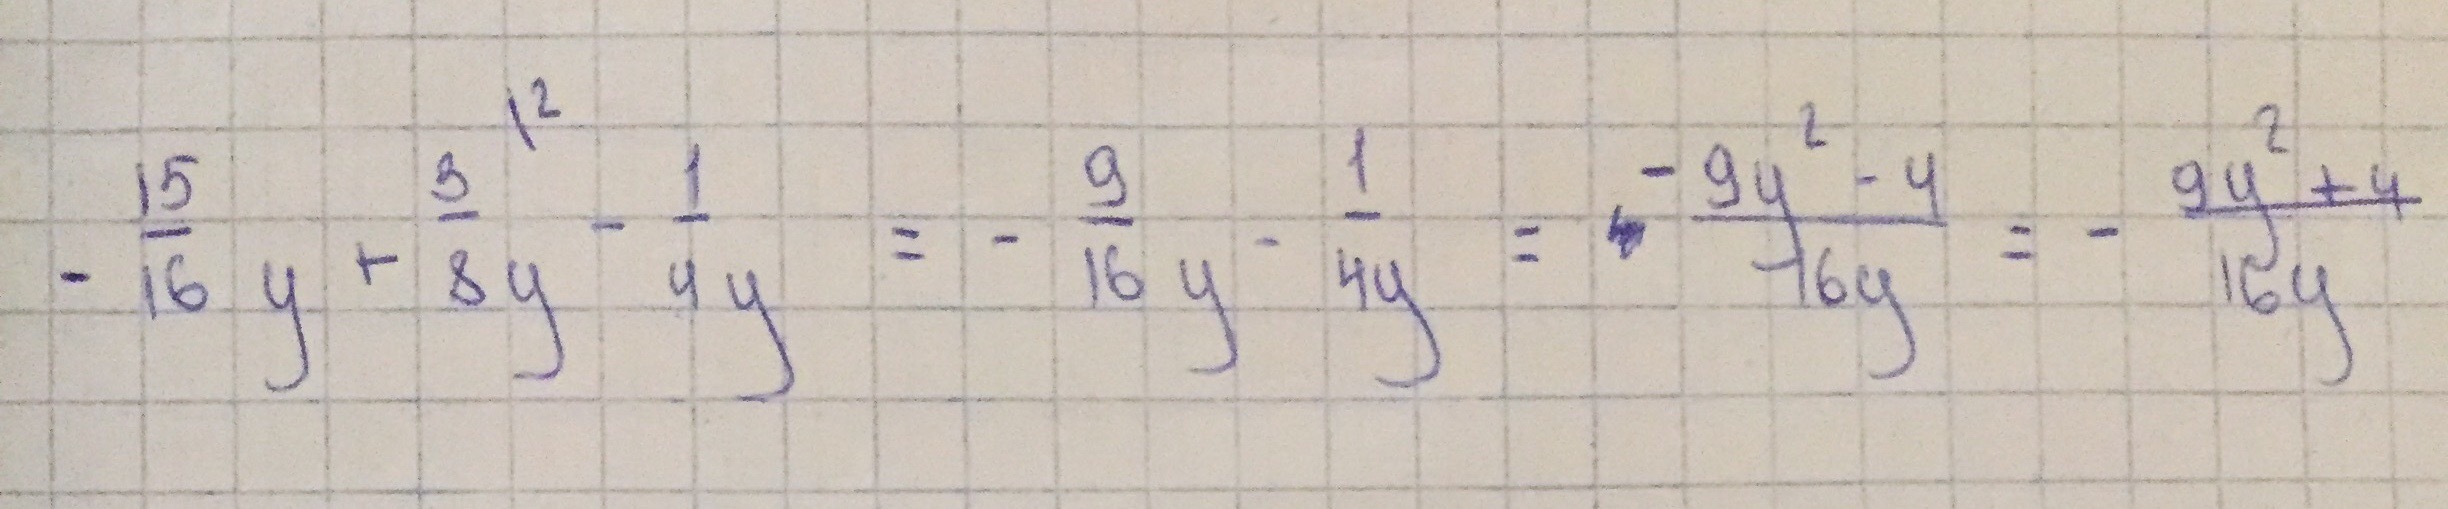 - 15/16 y + 3/8 y \² - 1/4 y = - 9/16 y - 1/4y = - (9y² - 4)/16y = - (9y² + 4)/16y